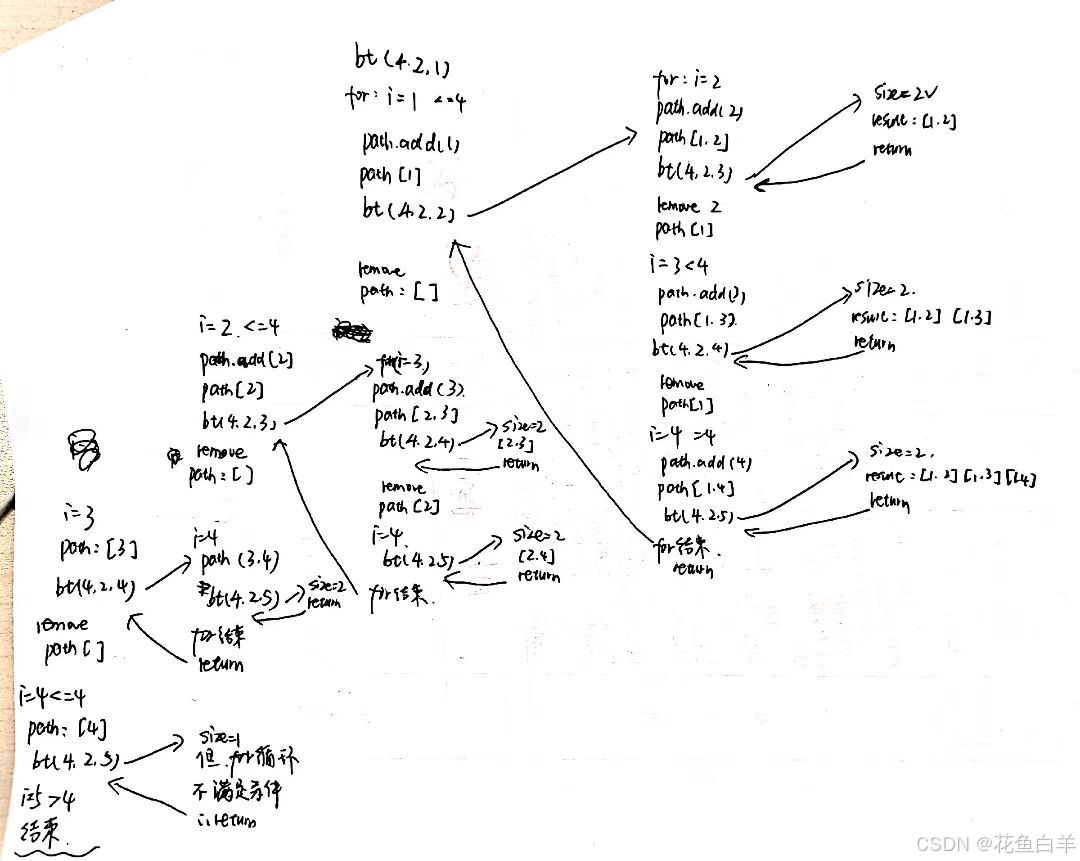 bt(4.2.1)
for: i=1 <=4
path.add(1)
path[1]
bt(4.2.2)
remove
path: []
for: i=2
path.add(2)
path[1.2]
bt(4.2.3)
remove 2
path[1]
i=3<4
path.add(3)
path[1.3]
bt(4.2.4)
remove
path[1]
i=4 =4
path.add(4)
path[1.4]
bt(4.2.5)
for结束.
return
size=2√
result: [1.2]
return
size=2.
result: [1.2] [1.3]
return
size=2.
result: [1.2] [1.3] [1.4]
return
i=2 <=4
path.add[2]
path[2]
bt(4.2.3)
remove
path: []
for(i=3)
path.add(3)
path[2.3]
bt(4.2.4)
remove
path[2]
i=4.
bt(4.2.5)
for结束.
size=2
[2.3]
return
size=2
[2.4]
return
i=3
path: [3]
bt(4.2.4)
remove
path[]
i=4
path(3.4)
bt(4.2.5)
for结束
return
size=2
return
i=4<=4
path: [4]
bt(4.2.5)
i=5>4
结束.
size=1
但for循环
不满足条件
∴return
CSDN @花鱼白羊